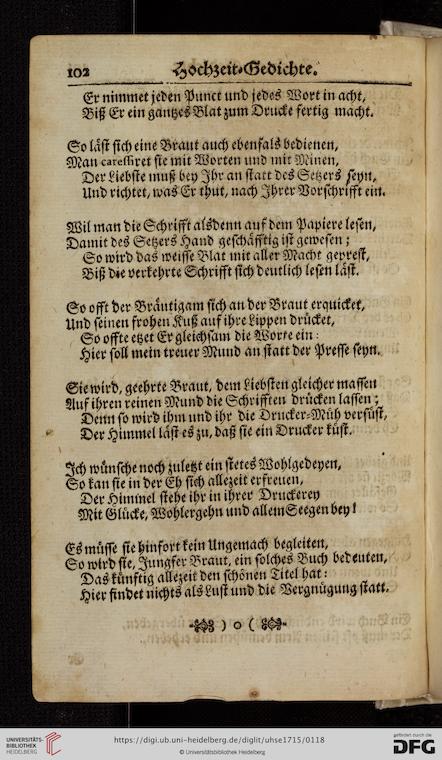 102 Hochzeit-Gedichte.
Er nimmet jeden Punct und jedes Wort in acht,
Biß Er ein gantzes Blat zum Drucke fertig macht.
So läst sich eine Braut auch ebenfals bedienen,
Man caressiret sie mit Worten und mit Minen,
Der Liebste muß bey Ihr an statt des Setzers seyn,
Und richtet, was Er thut, nach Ihrer Vorschrifft ein.
Wil man die Schrifft alsdenn auf dem Papiere lesen,
Damit des Setzers Hand geschäfftig ist gewesen;
So wird das weisse Blat mit aller Macht geprest,
Biß die verkehrte Schrifft sich deutlich lesen läst.
So offt der Bräutigam sich an der Braut erquicket,
Und seinen frohen Kuß auf ihre Lippen drücket,
So offte etzet Er gleichsam die Worte ein:
Hier soll mein treuer Mund an statt der Presse seyn.
Sie wird, geehrte Braut, dem Liebsten gleicher massen
Auf ihren reinen Mund die Schrifften drücken lassen;
Denn so wird ihm und ihr die Drucker-Müh versüst,
Der Himmel läst es zu, daß sie ein Drucker küst.
Ich wünsche noch zuletzt ein stetes Wohlgedeyen,
So kan sie in der Eh sich allezeit erfreuen,
Der Himmel stehe ihr in ihrer Druckerey
Mit Glücke, Wohlergehn und allem Seegen bey!
Es müsse sie hinfort kein Ungemach begleiten,
So wird sie, Jungfer Braut, ein solches Buch bedeuten,
Das künftig allezeit den schönen Titel hat:
Hier findet nichts als Lust und die Vergnügung statt.
) o (
UNIVERSITÄTS-
BIBLIOTHEK
HEIDELBERG
https://digi.ub.uni-heidelberg.de/diglit/uhse1715/0118
© Universitätsbibliothek Heidelberg
gefördert durch die
DFG